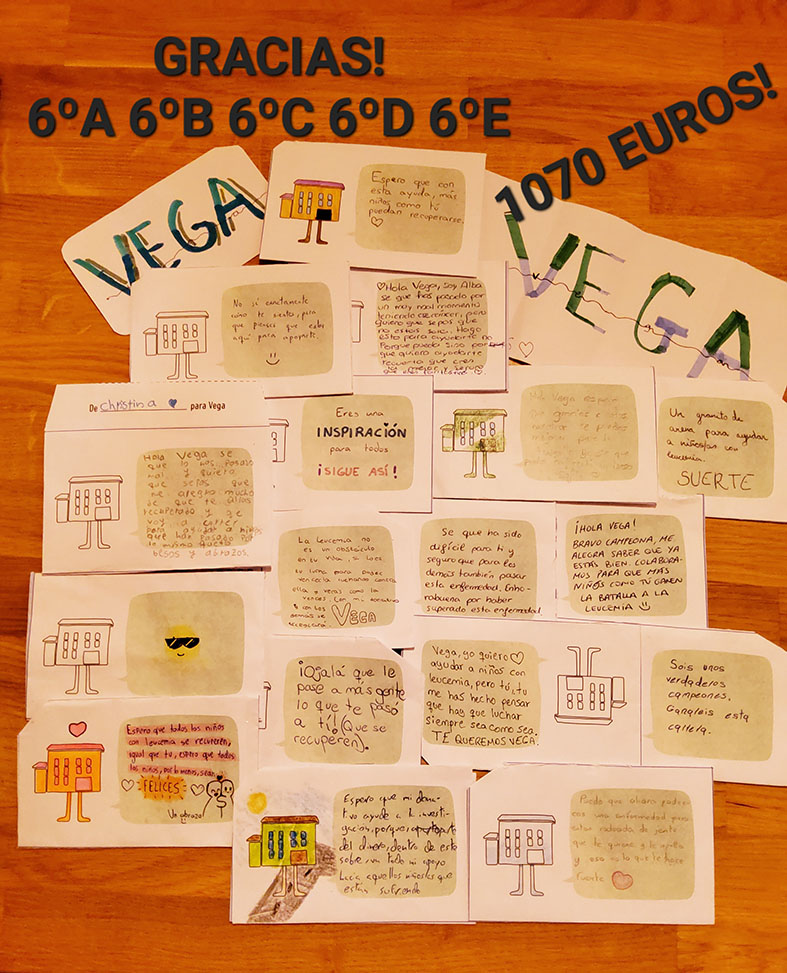 GRACIAS!
6ºA 6ºB 6ºC 6ºD 6ºE
1070 EUROS!
VEGA
Espero que con
esta ayuda, más
niños como tú
puedan recuperarse.
VEGA
No sé exactamente
como te sientes, pero
que pienses que estoy
aquí para apoyarte.
Hola Vega, soy Alba
se que has pasado por
un muy mal momento
quiero que sepas que
no estas sola. Hago
esto para ayudarte no
que quiero ayudarte
recuerda que eres
De Christina para Vega
Hola Vega se
que lo has pasado
mal y quiero
que sepas que
me alegro mucho
de que te allas
recuperado y que
voy a correr
para ayudar a niños
que han pasado por
lo mismo
besos y abrazos.
Eres una
INSPIRACIÓN
para todos
¡SIGUE ASÍ!
Hola Vega espero
Un granito de
arena para ayudar
a niños/as con
leucemia.
SUERTE
La leucemia no
es un obstáculo
en tu vida, si
VEGA
Se que ha sido
difícil para ti y
seguro que para los
demás también pasar
esta enfermedad. Enho-
rabuena por haber
superado esta enfermedad
¡HOLA VEGA!
BRAVO CAMPEONA, ME
ALEGRA SABER QUE YA
ESTÁS BIEN. COLABORA-
MOS PARA QUE MÁS
NIÑOS COMO TÚ GANEN
LA BATALLA A LA
LEUCEMIA
¡Ojalá que le
pase a más gente
lo que te pasó
a tí! (Que se
recuperen).
Vega, yo quiero
ayudar a niños con
leucemia, pero tú, tu
me has hecho pensar
que hay que luchar
siempre sea como sea.
TE QUEREMOS VEGA.
Sois unos
verdaderos
campeones.
Ganareis esta
carrera.
Espero que todos los niños
con leucemia se recuperen,
igual que tu, espero que todos
los niños, por lo menos, sean
FELICES
Un abrazo!
Espero que mi dona-
tivo ayude a la investi-
gación, porque, aparte
del dinero, dentro de este
sobre, va todo mi apoyo
hacia aquellos niños/as que
estan sufriendo
Puede que ahora padez-
cas una enfermedad pero
estas rodeada de gente
que te quiere y te apolla
y eso es lo que te hace
fuerte